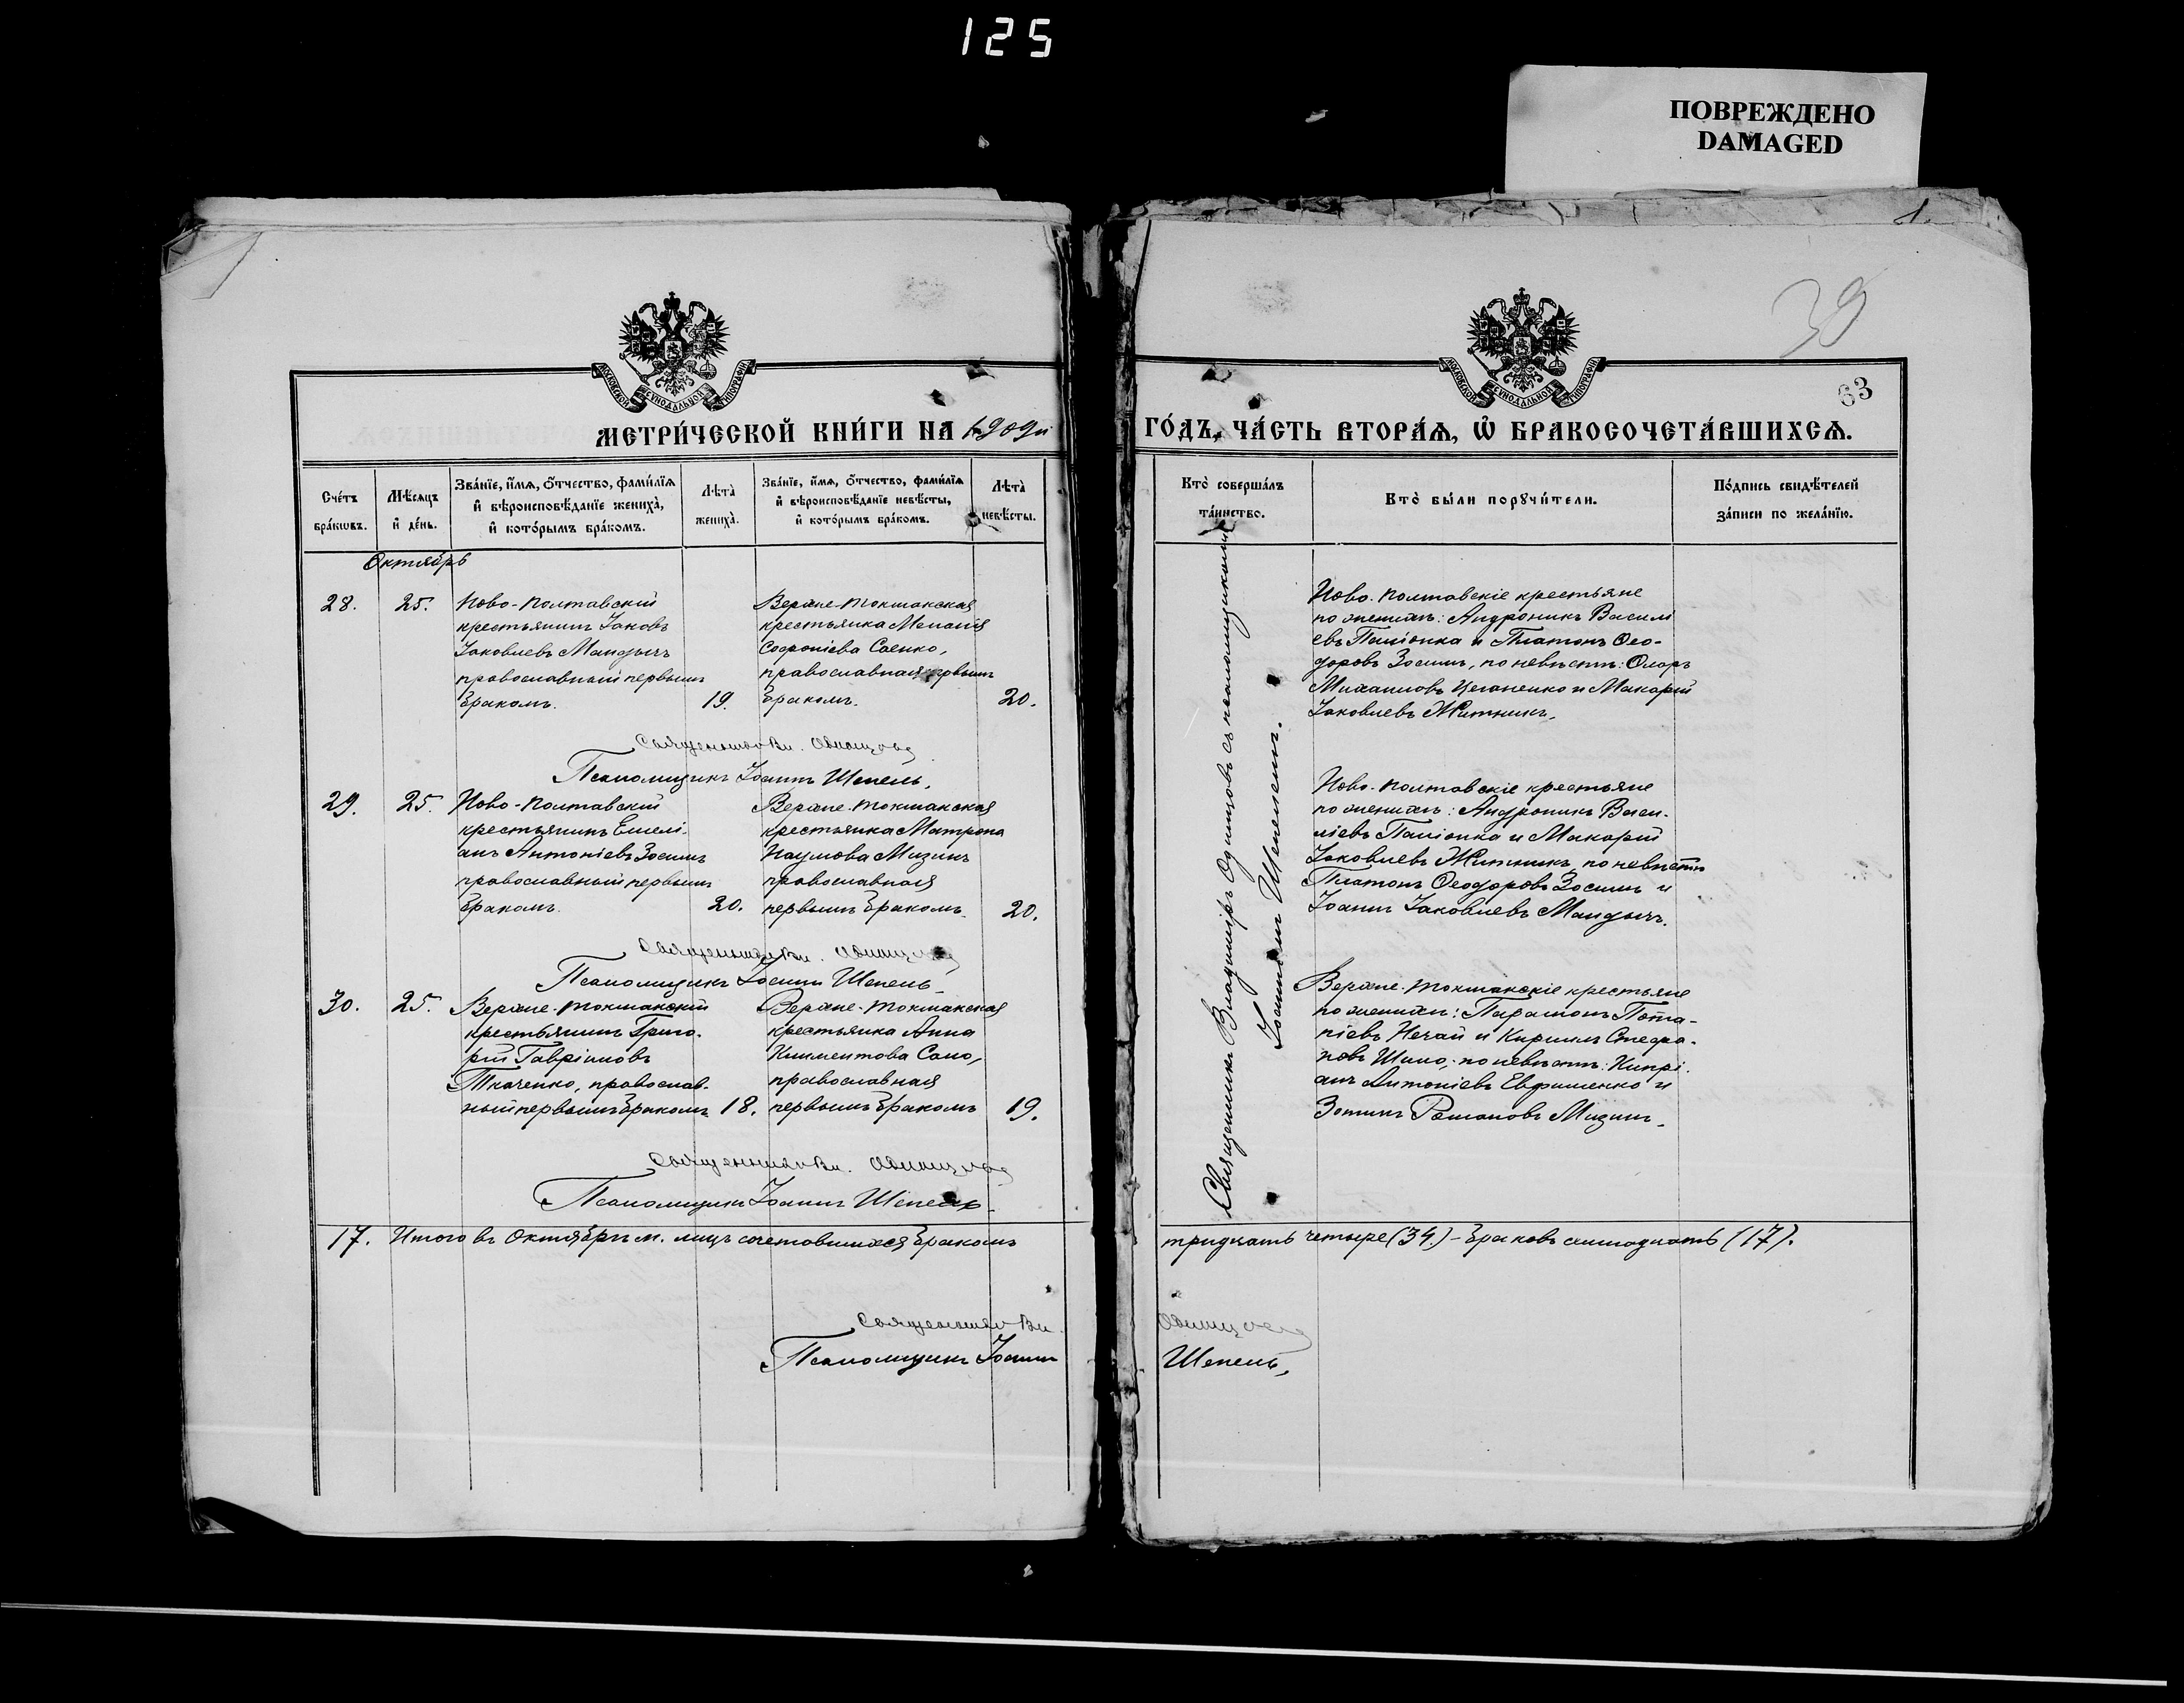 125
ПОВРЕЖДЕНО
DAMAGED
39
63
МЕТРИ́ЧЕСКОЙ КНИ́ГИ НА 1909й
ГО́ДЪ, ЧА́СТЬ ВТОРА́Ѧ, Ѡ҆ БРАКОСОЧЕТА́ВШИХСѦ.
МОСКОВСКОЙ СУНОДАЛЬНОЙ ТИПОГРАФІИ
МОСКОВСКОЙ СУНОДАЛЬНОЙ ТИПОГРАФІИ
Сче́тъ
бра́кѡвъ.
Мѣ́сяцъ
и҆ де́нь.
Зва́нїе, и҆́мѧ, ѻ҆́тчество, фами́лїѧ
и҆ вѣроисповѣ́данїе жениха̀,
и҆ кото́рымъ бра́комъ.
Лѣта̀
жениха̀.
Зва́нїе, и҆́мѧ, ѻ҆́тчество, фами́лїѧ
и҆ вѣроисповѣ́данїе невѣ́сты,
и҆ кото́рымъ бра́комъ.
Лѣта̀
невѣ́сты.
Кто̀ соверша́лъ
та́инство.
Кто̀ бы́ли порꙋчи́тели.
По́дпись свидѣ́телей
за́писи по жела́нїю.
Октябрь
28.
25.
Ново-Полтавскій
крестьянинъ Іаковъ
Іаковлевъ Мандычъ
православный первымъ
бракомъ.
19.
Верхне-Токмакская
крестьянка Меланія
Софроніева Саенко,
православная первымъ
бракомъ.
20.
Ново-Полтавскіе крестьяне
по женихѣ: Андроникъ Василі
евъ Паліонка и Платонъ Ѳео-
доровъ Зосимъ, по невѣстѣ:
Михаиловъ Цеганенко и Макарій
Іаковлевъ Житникъ.
Священникъ Вл. Одинцовъ
Псаломщикъ Іоаннъ Шепель.
29.
25.
Ново-Полтавскій
крестьянинъ Емелі-
анъ Антоніевъ Зосимъ
православный первымъ
бракомъ.
20.
Верхне-Токмакская
крестьянка Матрона
Наумова Мизинъ
православная
первымъ бракомъ.
20.
Ново-Полтавскіе крестьяне
по женихѣ: Андроникъ Васи-
ліевъ Паліонка и Макарій
Іаковлевъ Житникъ, по невѣстѣ
Платонъ Ѳеодоровъ Зосимъ и
Іоаннъ Іаковлевъ Мандычъ.
Священникъ Вл. Одинцовъ
Псаломщикъ Іоаннъ Шепель
30.
25.
Верхне-Токмакскій
крестьянинъ Григо-
рій Гавріиловъ
Ткаченко, православ-
ный первымъ бракомъ
18.
Верхне-Токмакская
крестьянка Анна
Климентова Сало,
православная
первымъ бракомъ
19.
Верхне-Токмакскіе крестьяне
по женихѣ: Парамонъ Пота-
піевъ Нечай и Кириллъ Стефа-
новъ Шило; по невѣстѣ: Кипрі-
анъ Антоніевъ Евфименко и
Зотикъ Романовъ Мизинъ.
Священникъ Вл. Одинцовъ
Псаломщикъ Іоаннъ Шепель
Священникъ Владиміръ Одинцовъ съ псаломщикомъ
Іоанномъ Шепелемъ.
17. Итого въ Октябрѣ м. лицъ сочетавшихся бракомъ тридцать четыре (34.) – браковъ семнадцать (17).
Священникъ Вл. Одинцовъ
Псаломщикъ Іоаннъ Шепель,